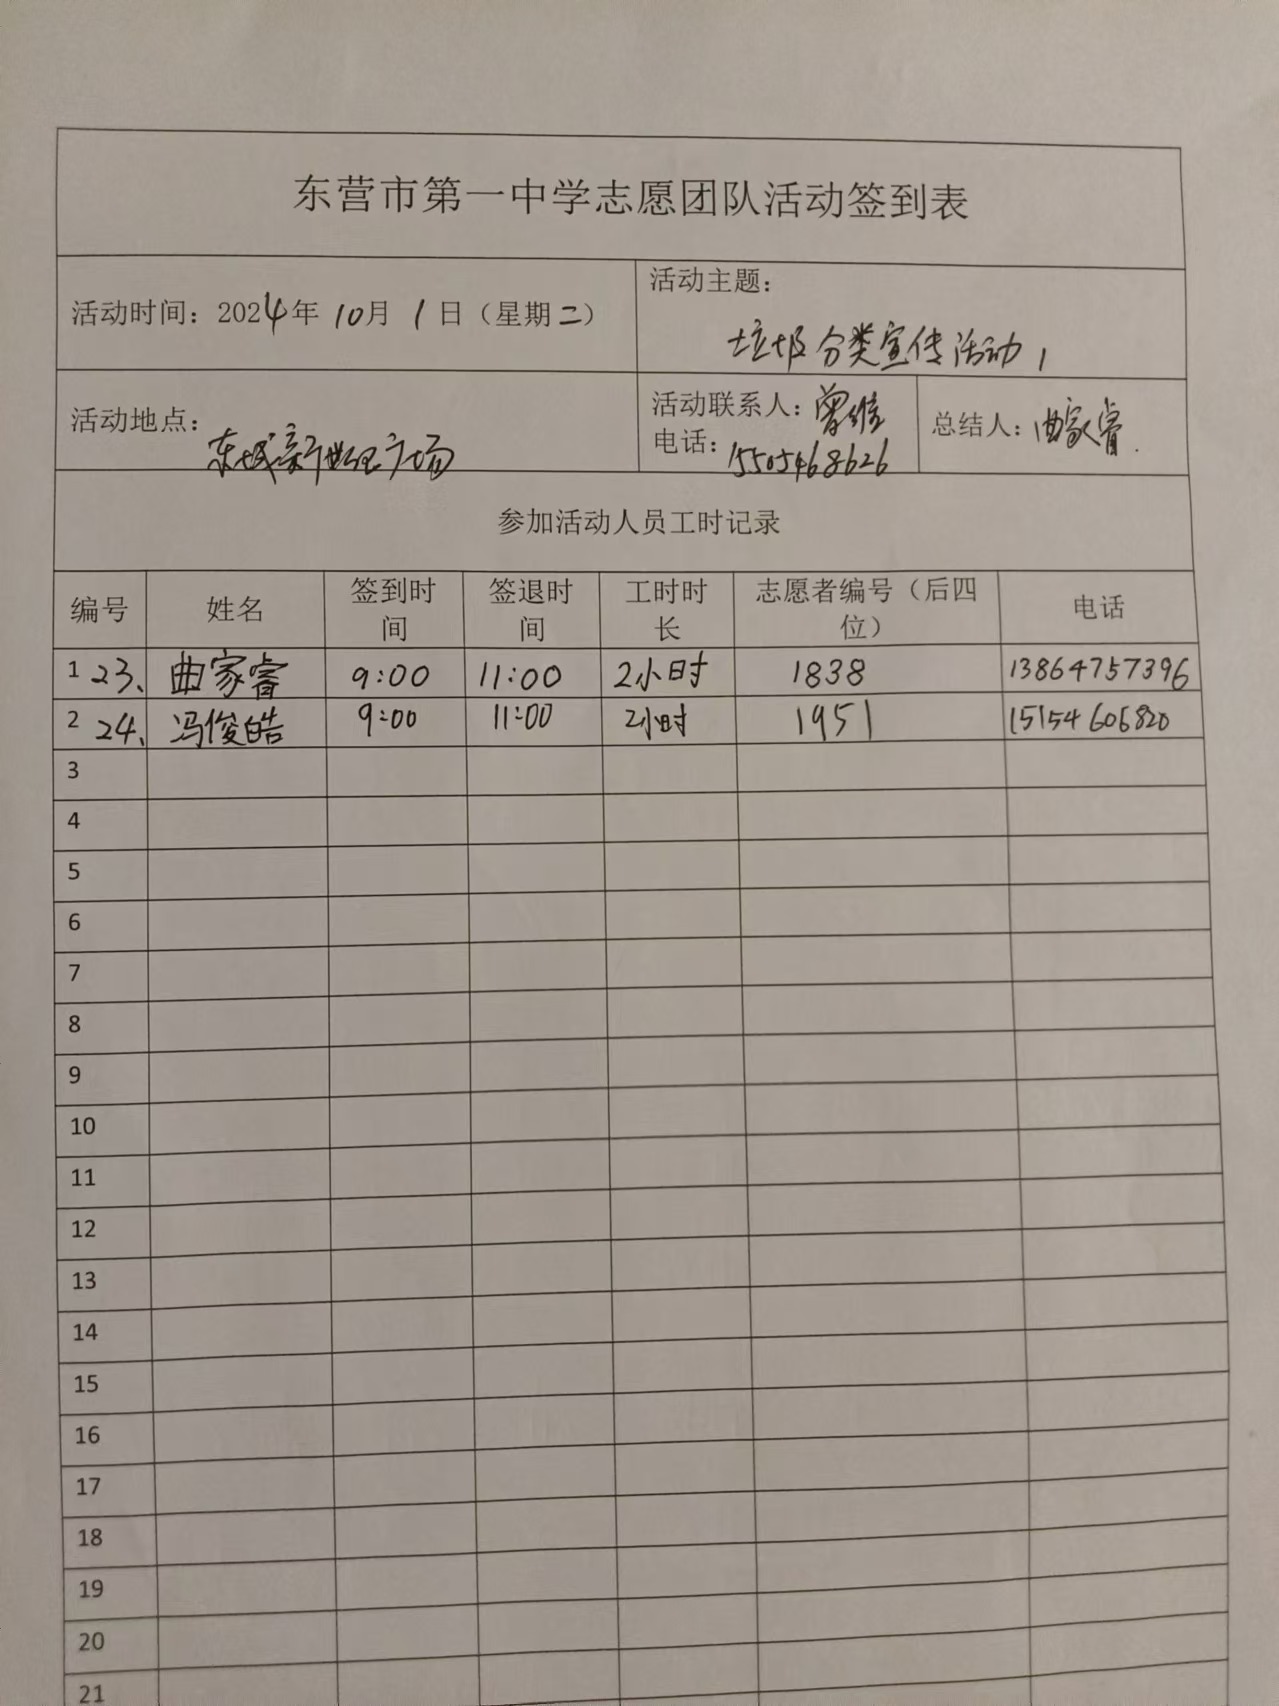 东营市第一中学志愿团队活动签到表
活动时间：2024年 10月 1日（星期二）
活动主题：
垃圾分类宣传活动1
活动地点：
东城新世纪广场
活动联系人：曾维
电话：15505468626
总结人：曲家睿.
参加活动人员工时记录
编号 姓名 签到时间 签退时间 工时时长 志愿者编号（后四位） 电话
1 23、 曲家睿 9:00 11:00 2小时 1838 13864757396
2 24、 冯俊皓 9:00 11:00 2小时 1951 15154606820
3
4
5
6
7
8
9
10
11
12
13
14
15
16
17
18
19
20
21